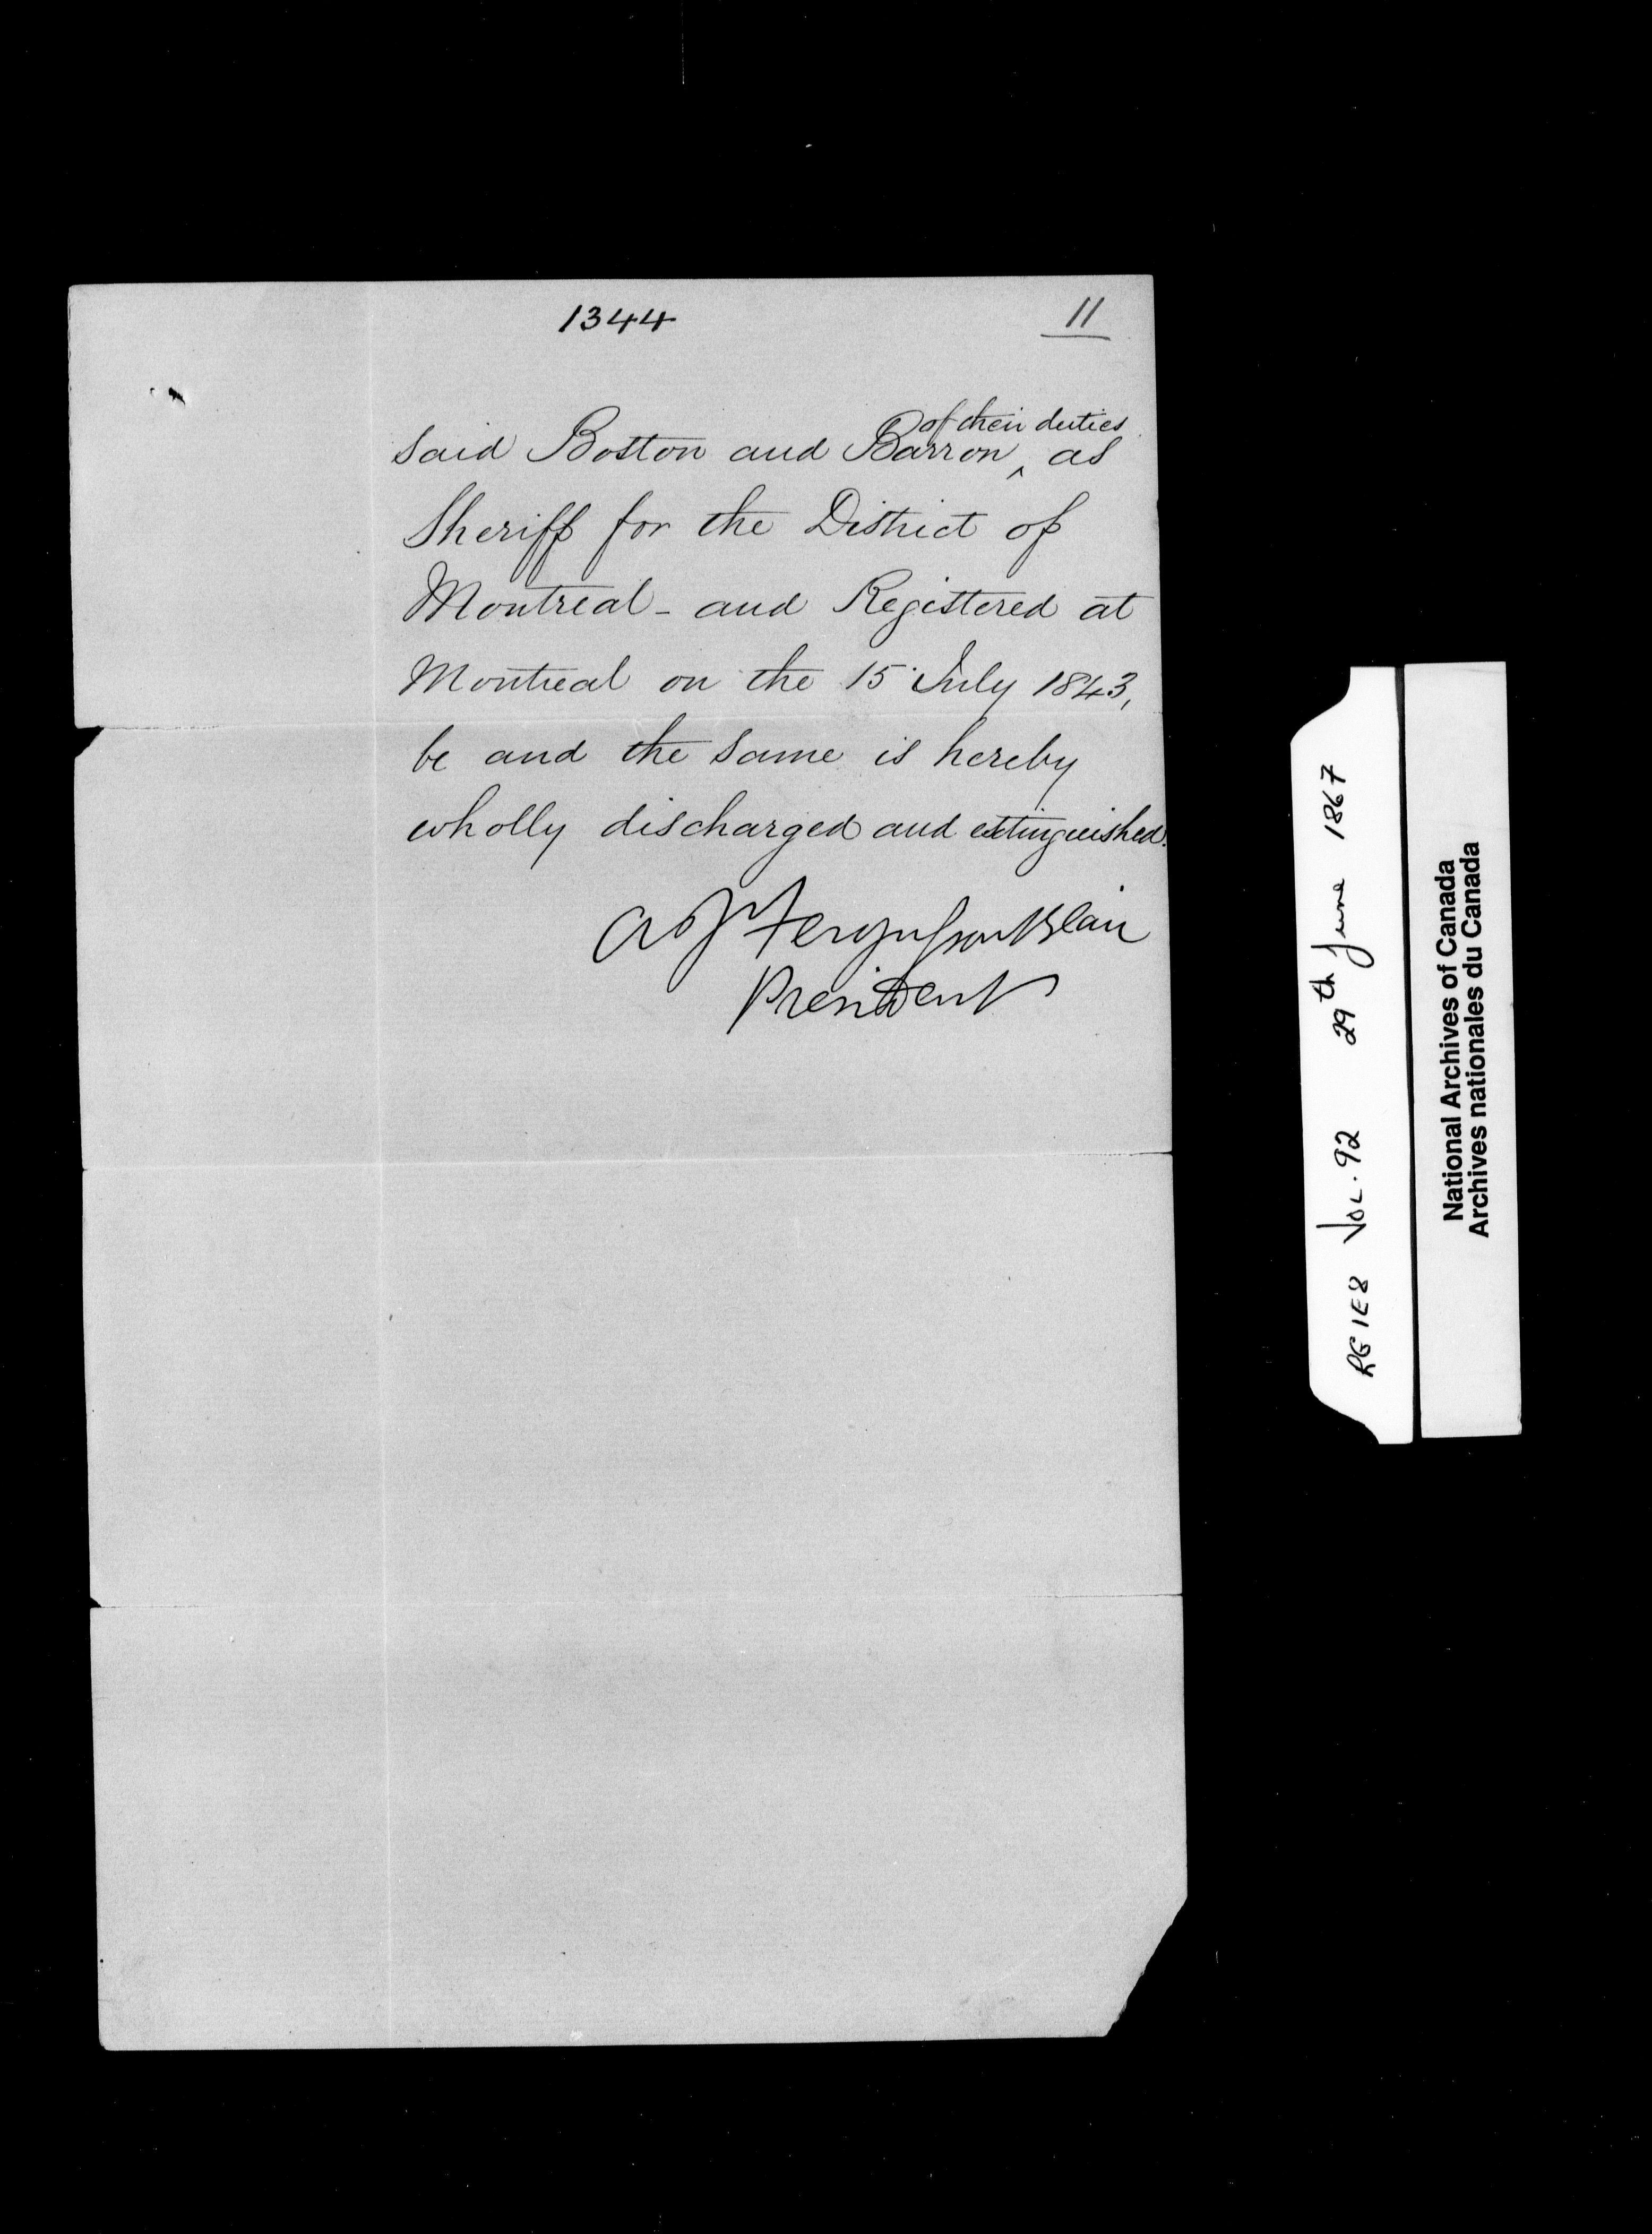 1344
11
of their duties
said Boston and Barron ‸ as
Sheriff for the District of
Montreal - and Registered at
Montreal on the 15 July 1843,
be and the same is hereby
wholly discharged and extinguished.
A J Fergusson Blair
President
RG 1 E8 VOL. 92 29th June 1867
National Archives of Canada
Archives nationales du Canada